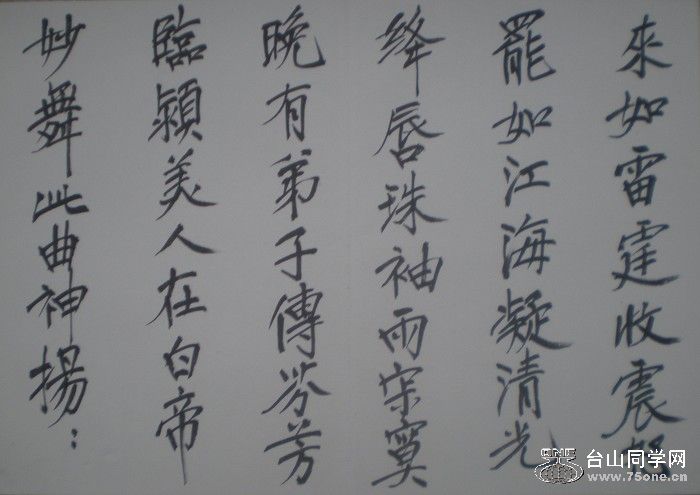 來如雷霆收震怒
罷如江海凝清光
絳唇珠袖兩寂寞
晚有弟子傳芬芳
臨潁美人在白帝
妙舞此曲神揚：
台山同学网
www.75one.cn